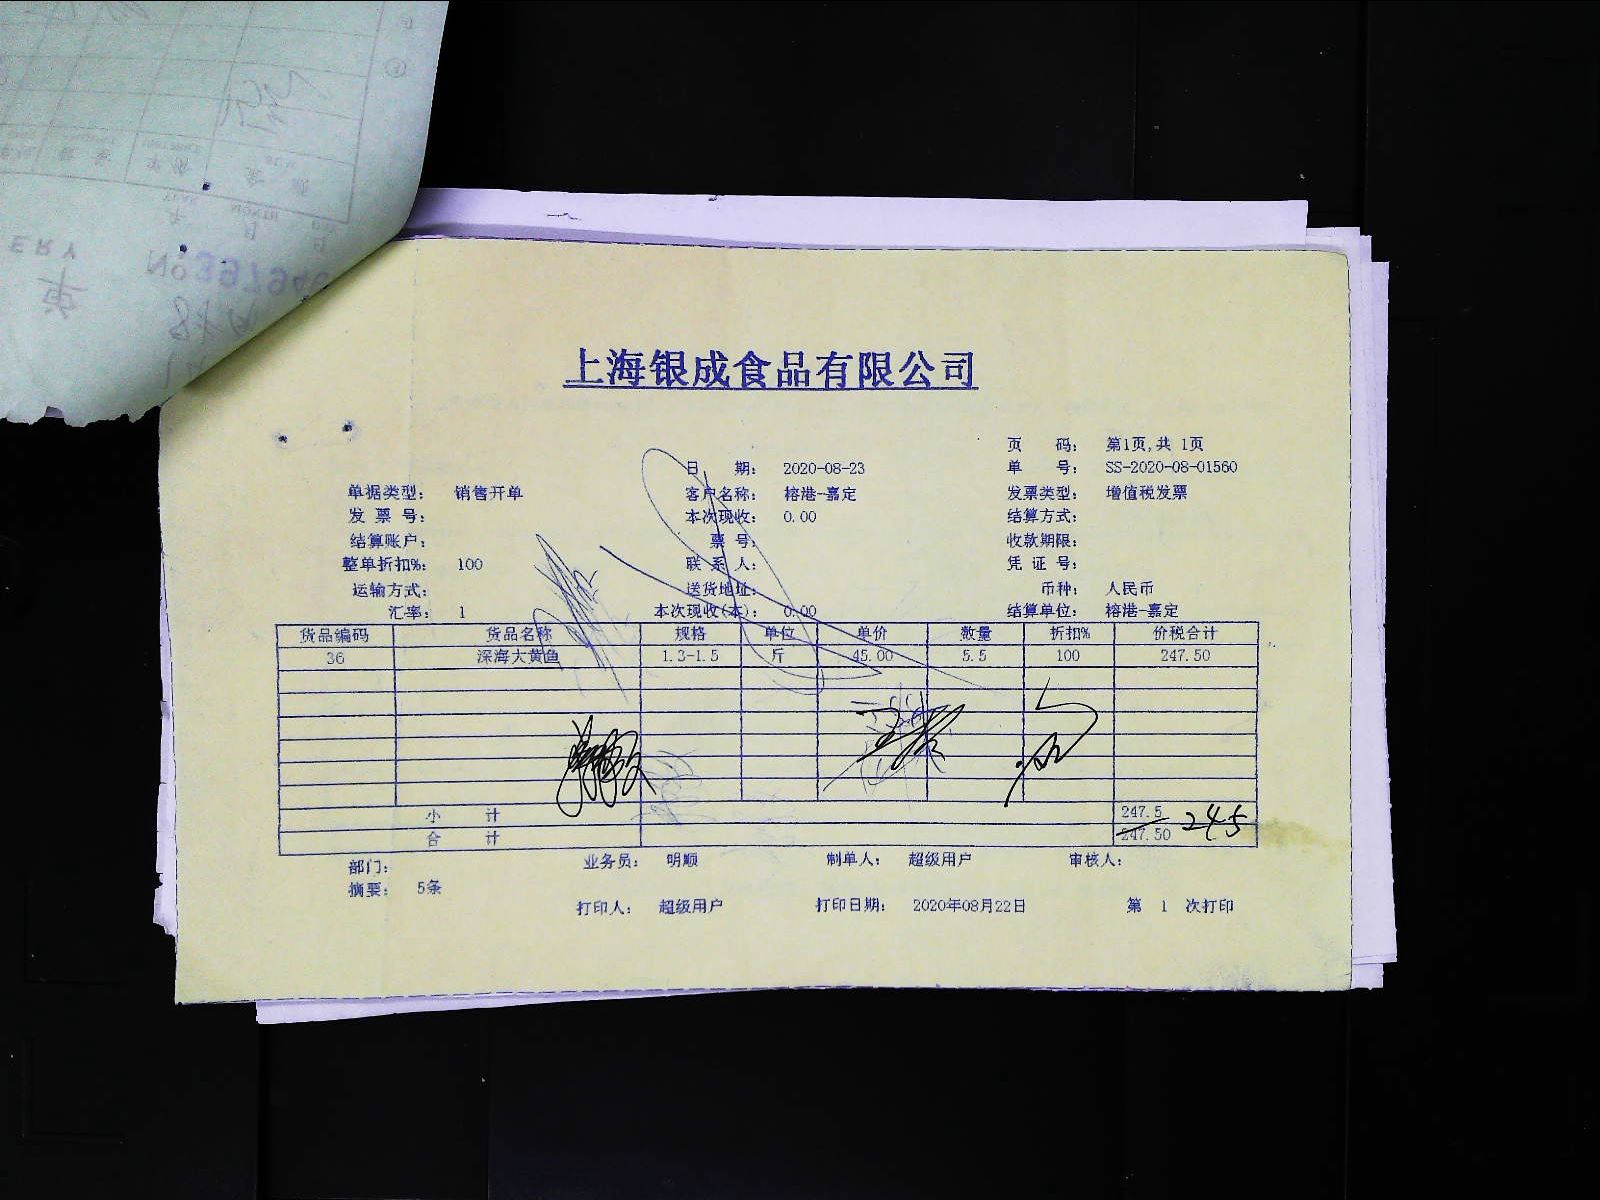 上海银成食品有限公司
页 码： 第1页,共 1页
日 期： 2020-08-23 单 号： SS-2020-08-01560
单据类型： 销售开单 客户名称： 榕港-嘉定 发票类型： 增值税发票
发 票 号： 本次现收： 0.00 结算方式：
结算账户： 票 号： 收款期限：
整单折扣%： 100 联 系 人： 凭 证 号：
运输方式： 送货地址： 币种： 人民币
汇率： 1 本次现收(本)： 0.00 结算单位： 榕港-嘉定
货品编码 货品名称 规格 单位 单价 数量 折扣% 价税合计
36 深海大黄鱼 1.3-1.5 斤 45.00 5.5 100 247.50
小 计 247.5
合 计 247.50 245
部门： 业务员： 明顺 制单人： 超级用户 审核人：
摘要： 5条
打印人： 超级用户 打印日期： 2020年08月22日 第 1 次打印